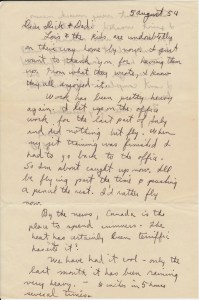 5 August 54
Dear Dick & Dad:
Lois & the kids are undoubtedly
on their way home by now. I just
want to thank you for having them
over. From what they wrote, I know
they all enjoyed it.
Work has been pretty heavy
again. I let up on the office
work for the last part of July
and did nothing but fly. When
my jet training was finished I
had to go back to the office.
So I'm about caught up now. I'll be
flying part the time & pushing
a pencil the rest. I'd rather fly
now.
By the news, Canada is the
place to spend summer - the
heat has certainly been terrific
hasn't it?
We have had it cool - only the
last month it has been raining
very heavy. - 6 inches in 5 hours
several times.